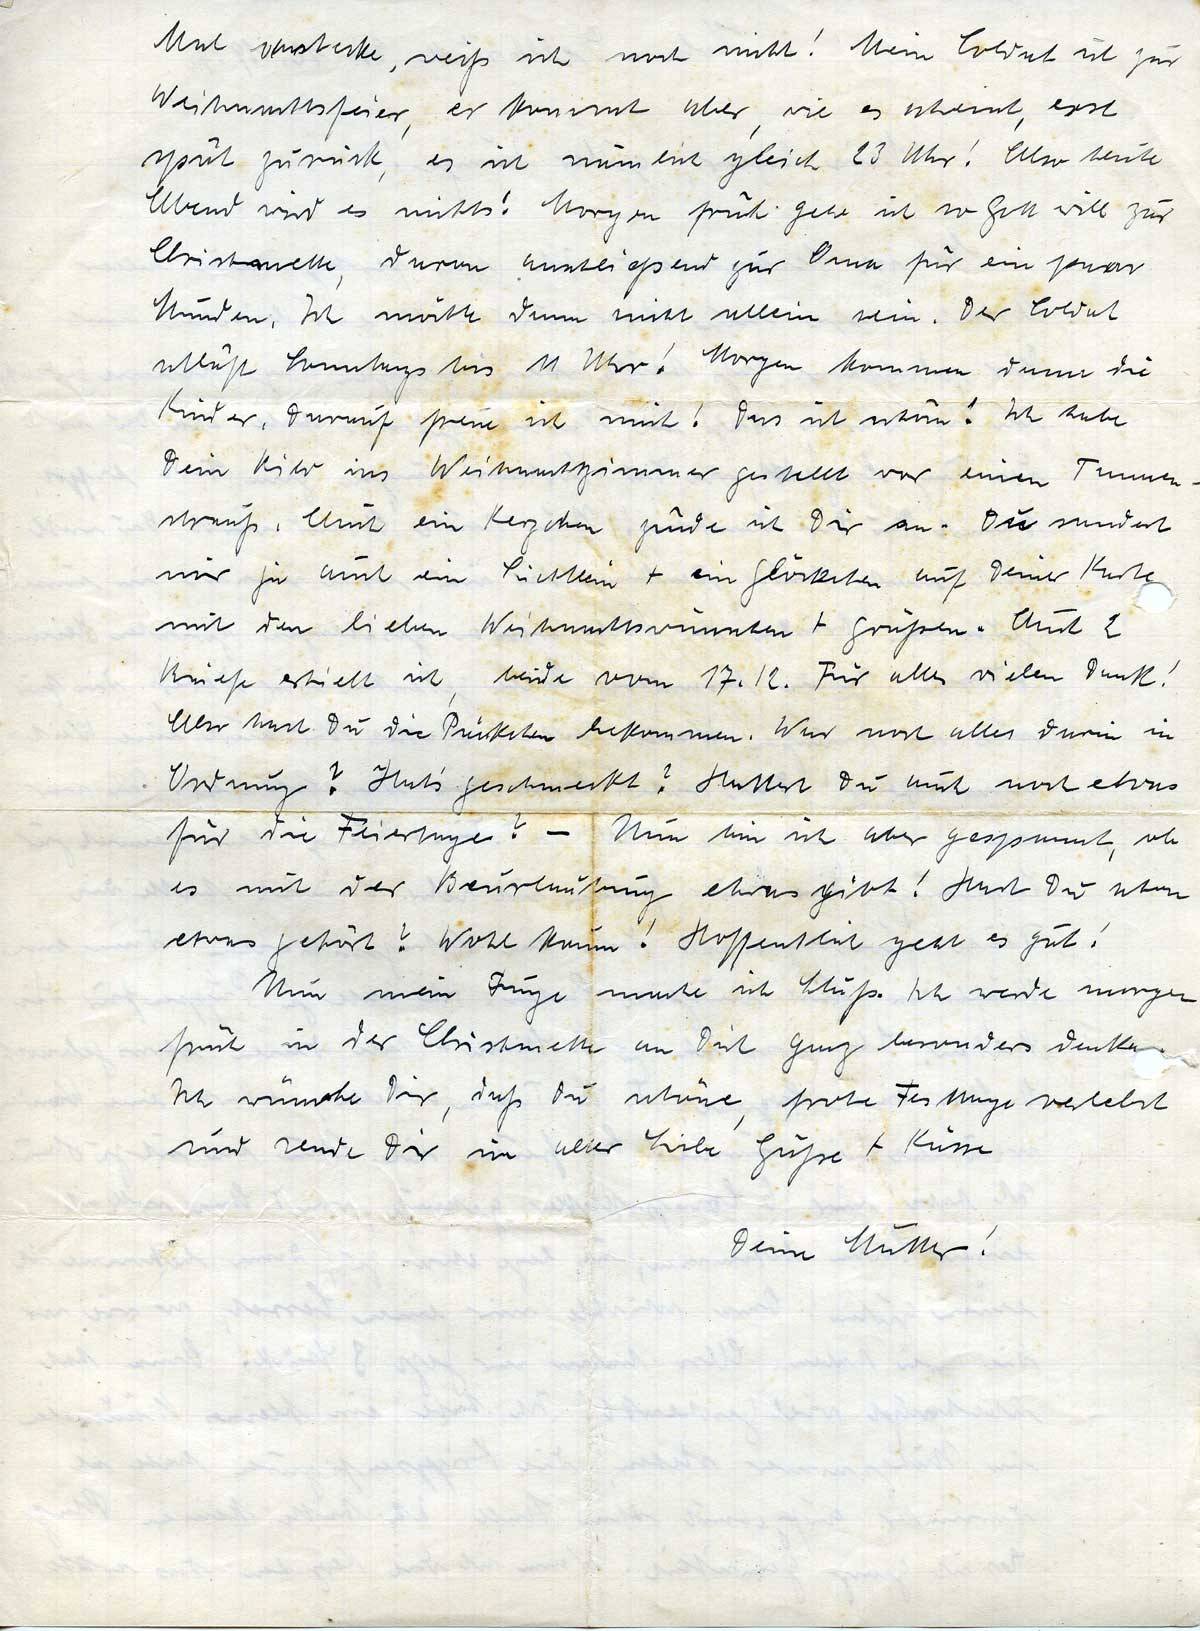 Mal verstecke, weiß ich noch nicht! Mein Soldat ist zur
Weihnachtsfeier, er kommt aber, wie es scheint, erst
spät zurück, es ist nämlich gleich 23 Uhr! Also heute
Abend wird es nichts! Morgen früh gehe ich so Gott will zur
Christmette, davon anschließend zur Oma für ein paar
Stunden. Ich möchte dann nicht allein sein. Der Soldat
schläft Sonntags bis 11 Uhr! Morgen kommen dann die
Kinder, darauf freue ich mich! Das ist schön! Ich habe
Dein Bild ins Weihnachtszimmer gestellt vor einen Tannen-
strauß. Auch ein Kerzchen zünde ich Dir an. Du sandest
mir ja auch ein Lichtlein + ein Glöckchen auf Deiner Karte
mit den lieben Weihnachtswünschen + Grüßen. Auch 2
Briefe erhielt ich, beide vom 17.12. Für alles vielen Dank!
Also hast Du die Päckchen bekommen. War noch alles darin in
Ordnung? Hat's geschmeckt? Hattest Du auch noch etwas
für die Feiertage? – Nun bin ich aber gespannt, ob
es mit der Beurlaubung etwas gibt! Hast Du schon
etwas gehört? Wohl kaum! Hoffentlich geht es gut!
Nun mein Junge mache ich Schluß. Ich werde morgen
früh in der Christmette an Dich ganz besonders denken.
Ich wünsche Dir, daß Du schöne, frohe Festtage verlebst
und sende Dir in aller Liebe Grüße + Küsse
Deine Mutter!